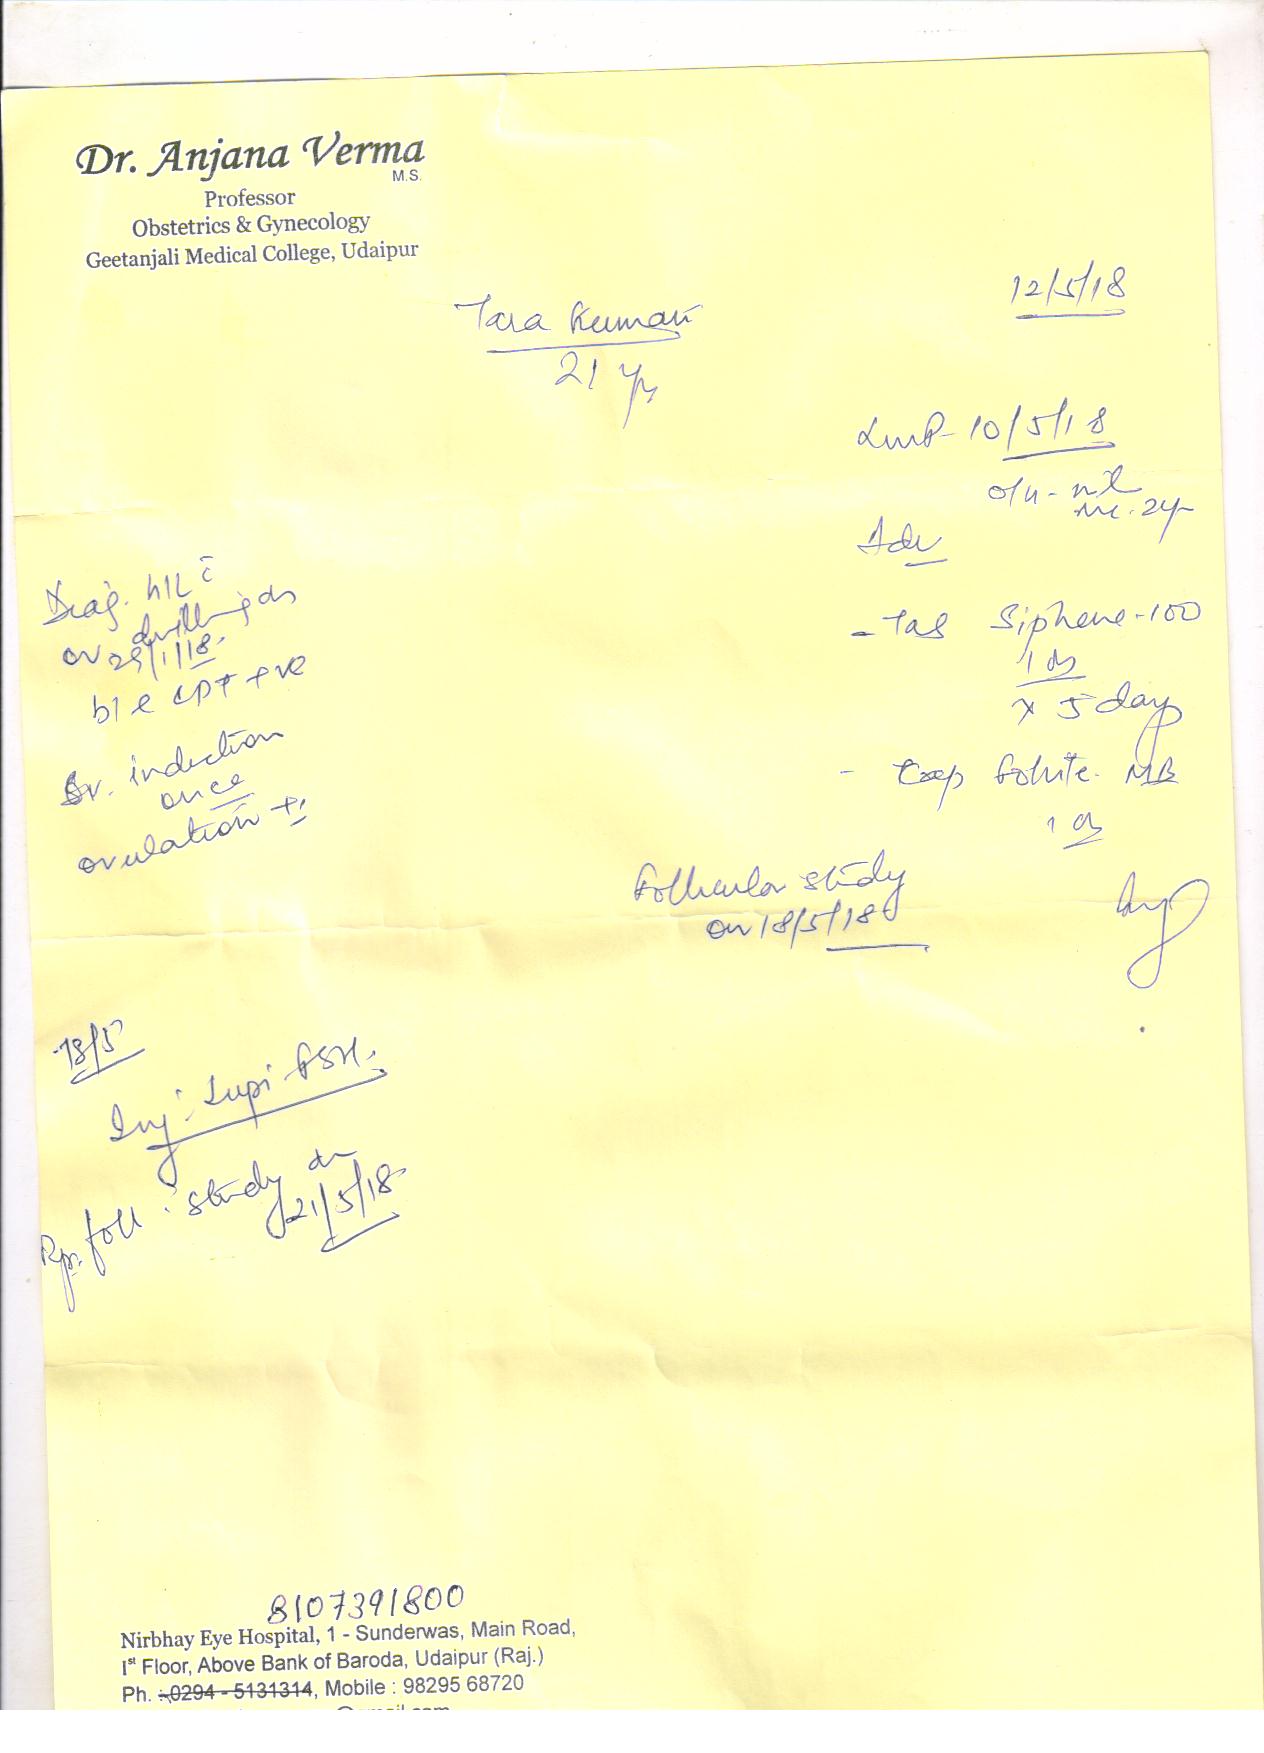 Dr. Anjana Verma
M.S.
Professor
Obstetrics & Gynecology
Geetanjali Medical College, Udaipur
12/5/18
Tara Kumari
21 yr
LMP- 10/5/18
O/H- nil
Adv
Diag. H/L c̄
drilling
on 29/1/18
b/l CPT +ve
Ov. induction
once
ovulation +
- Tab Siphene-100
1 OD
x 5 days
- Cap Folvite MB
1 OD
Follicular study
on 18/5/18
18/5
Inj. Lupi FSH.
Rp. foll. study on
21/5/18
8107391800
Nirbhay Eye Hospital, 1 - Sunderwas, Main Road,
Ist Floor, Above Bank of Baroda, Udaipur (Raj.)
Ph. : 0294 - 5131314, Mobile : 98295 68720